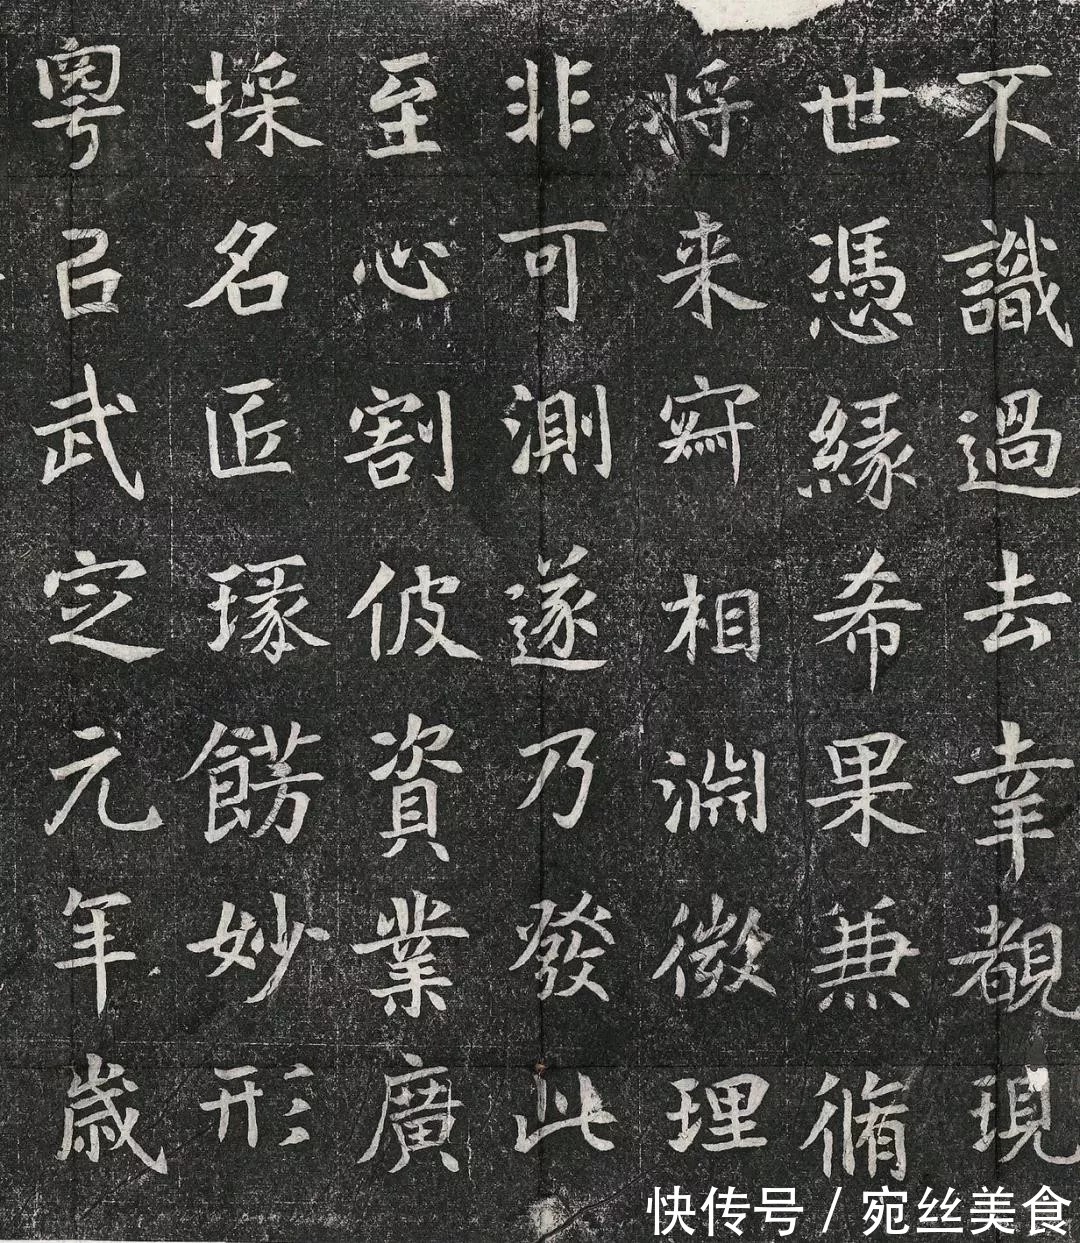 不識過去幸覩現
世憑緣希果兼脩
将来㝛相淵微理
非可測遂乃發此
至心割彼資業廣
採名匠瑑餝妙形
粤以武定元年歲
快传号 / 宛丝美食